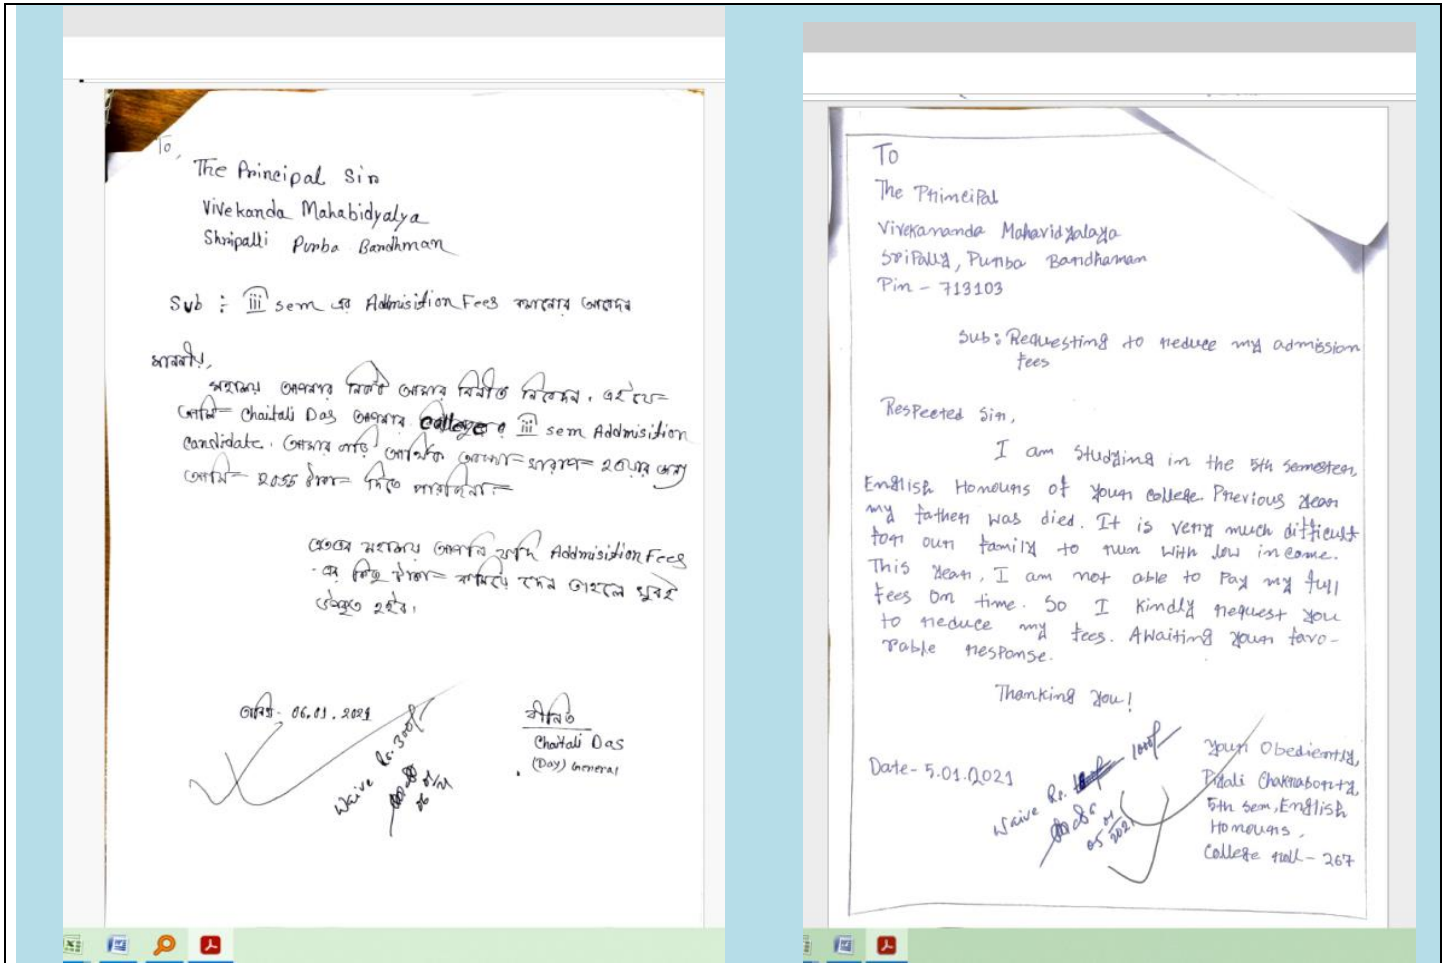 To,
The Principal Sir
Vivekanda Mahabidyalya
Shripalli Purba Bandhman
Sub : iii sem এর Addmisition Fees কমানোর আবেদন
মাননীয়,
মহাশয় আপনার নিকট আমার বিনীত নিবেদন, এই যে
আমি Chaitali Das আপনার College র iii sem Addmisition
Candidate. আমার আর্থিক অবস্থা খারাপ হওয়ার জন্য
আমি 2055 টাকা দিতে পারছিনা।
অতএব মহাশয় আপনি যদি Addmisition Fees
এর কিছু টাকা কমিয়ে দেন তাহলে খুবই
উপকৃত হইব।
06.01.2021
বিনীত
Chaitali Das
(Day) General
Waive Rs. 300/-
To
The Principal
Vivekananda Mahavidyalaya
Sripally, Purba Bardhaman
Pin - 713103
Sub: Requesting to reduce my admission
fees
Respected Sir,
I am studying in the 5th semester,
English Honours of your college. Previous year
my father was died. It is very much difficult
for our family to run with low income.
This year, I am not able to pay my full
fees on time. So I kindly request you
to reduce my fees. Awaiting your favo-
rable response.
Thanking you!
Date - 5.01.2021
Waive Rs. 1000/-
05/01/2021
Your Obediently,
Piyali Chakraborty,
5th sem, English
Honours,
College roll - 267